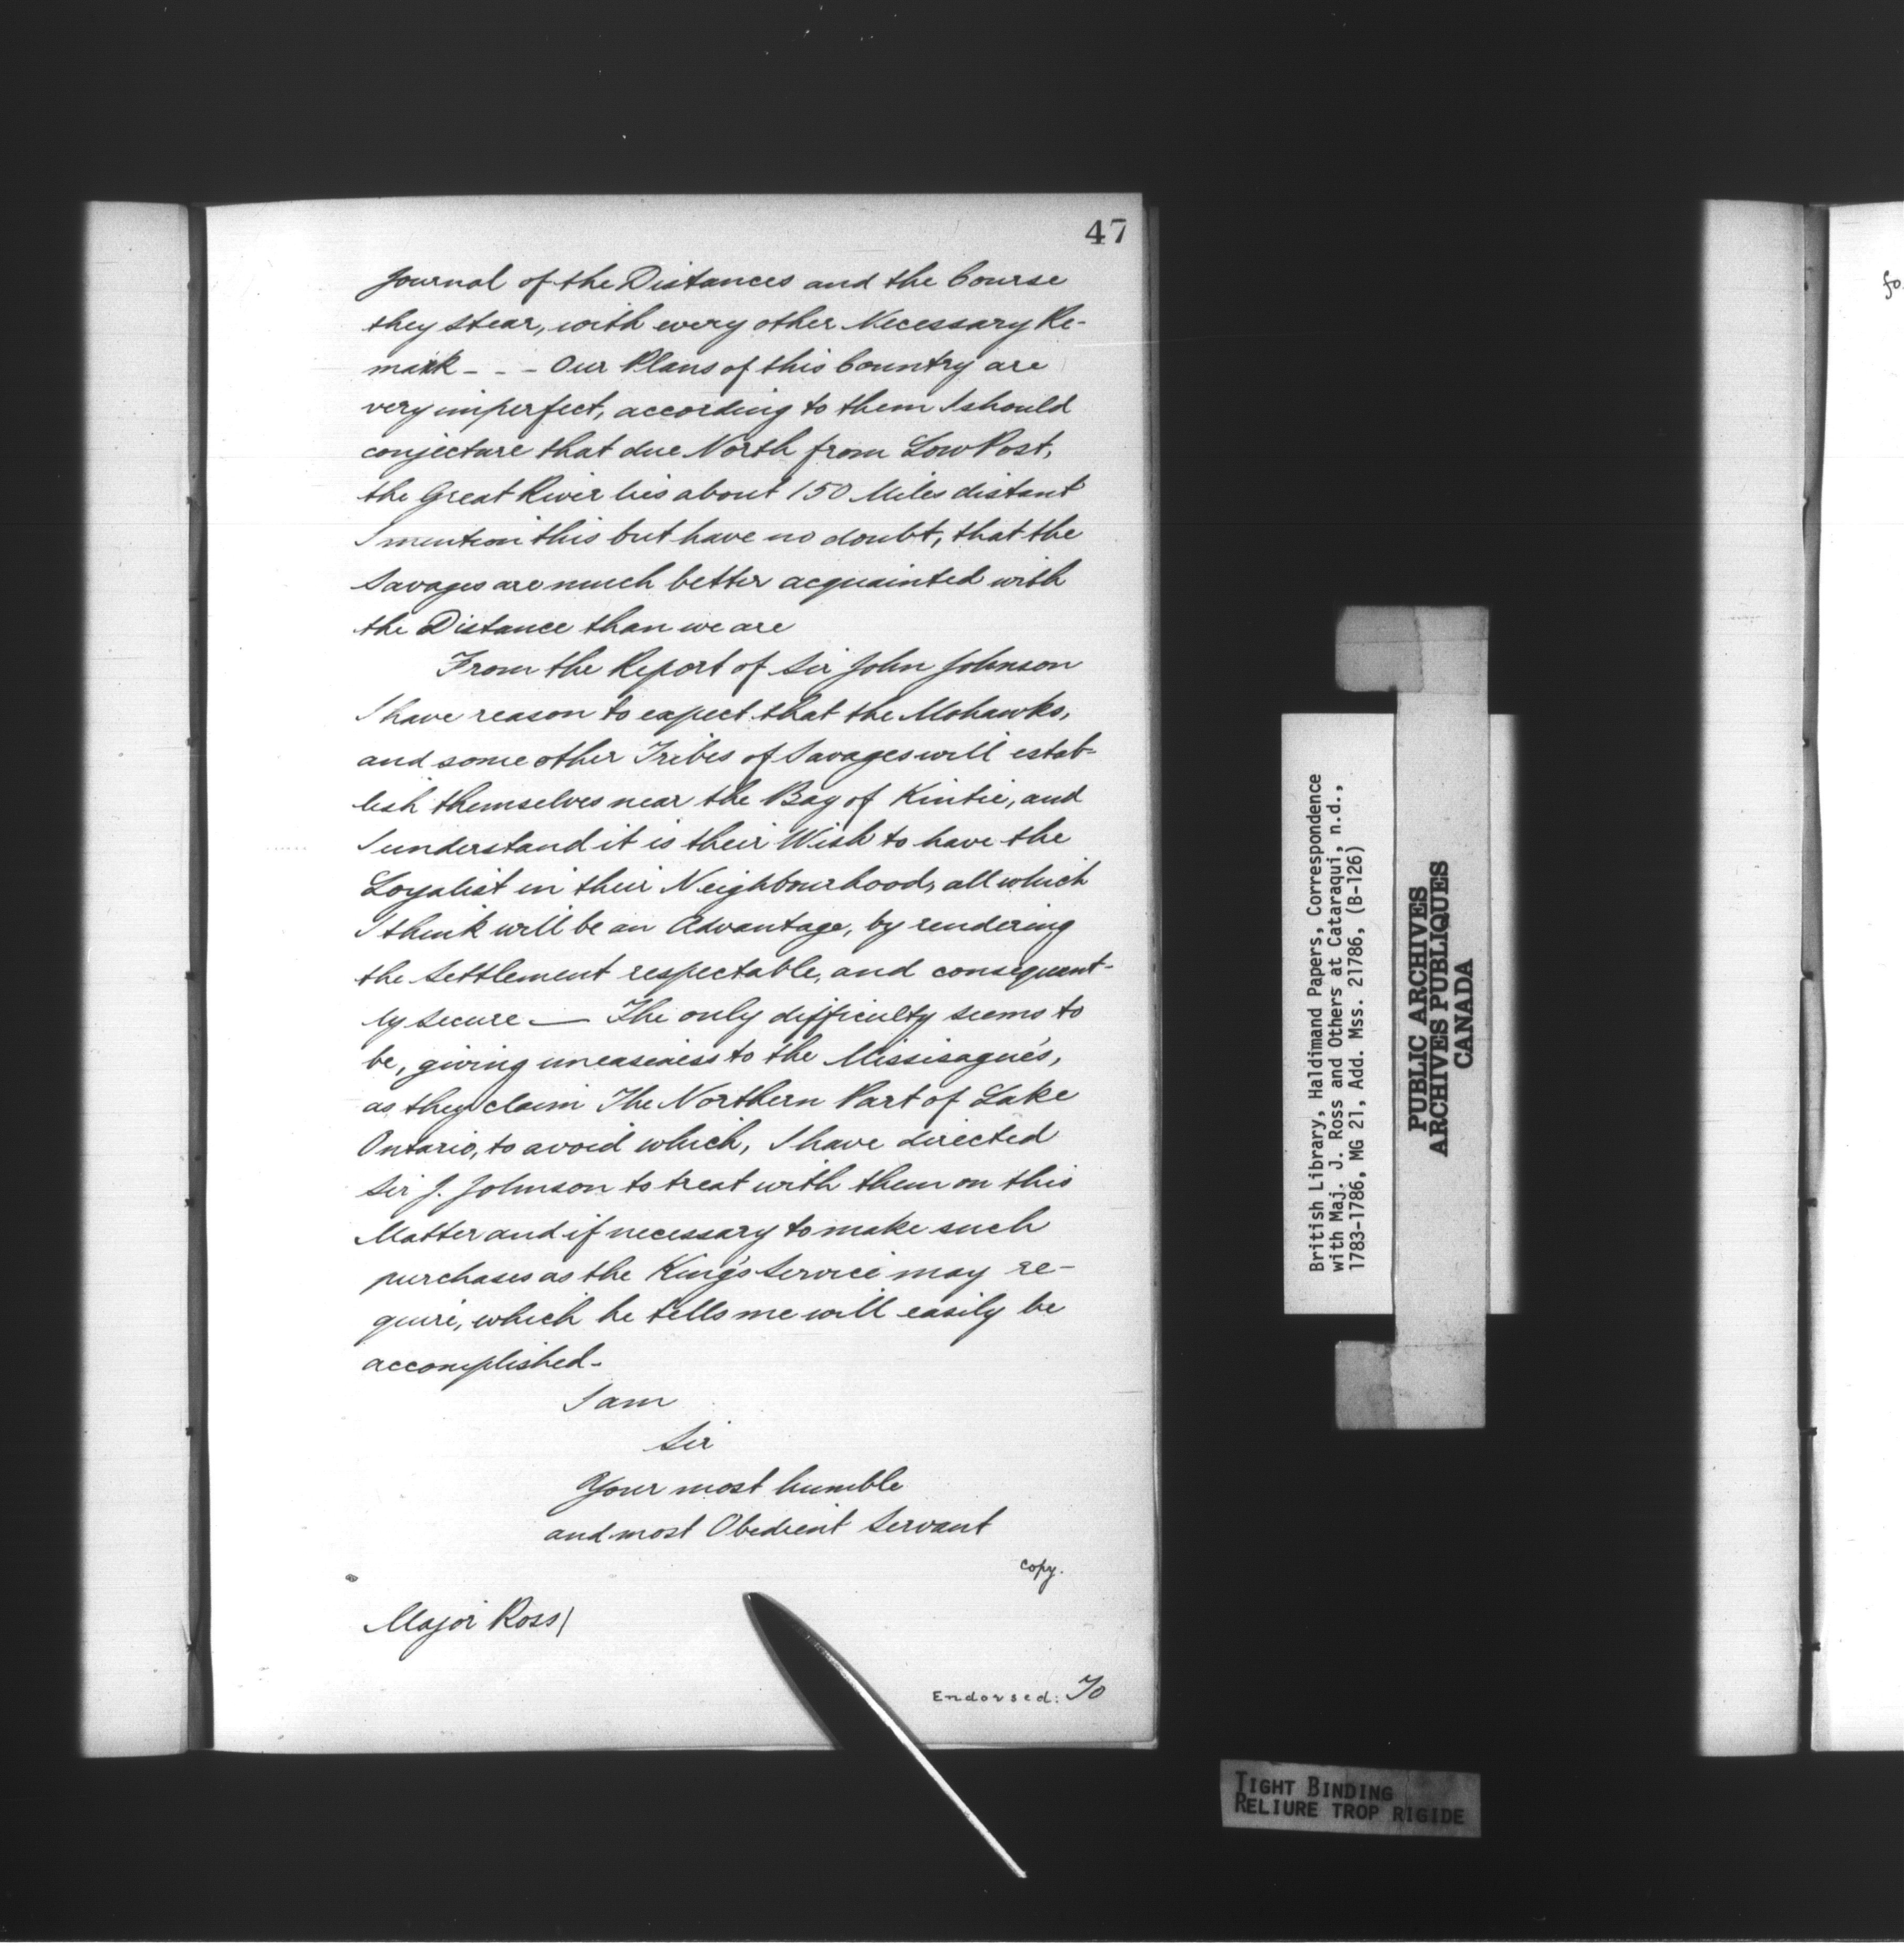 47
Journal of the Distances and the Course
they stear, with every other Necessary Re-
mark - - - Our Plans of this Country are
very imperfect, according to them I should
conjecture that due North from Low Post,
the Great River lies about 150 Miles distant
I mention this but have no doubt, that the
Savages are much better acquainted with
the Distance than we are
From the Report of Sir John Johnson
I have reason to expect that the Mohawks,
and some other Tribes of Savages will estab-
lish themselves near the Bay of Kintie, and
I understand it is their Wish to have the
Loyalist in their Neighbourhood, all which
I think will be an Advantage, by rendering
the Settlement respectable, and consequent-
ly secure — The only difficulty seems to
be, giving uneasiness to the Missisague's,
as they claim The Northern Part of Lake
Ontario, to avoid which, I have directed
Sir J. Johnson to treat with them on this
Matter and if necessary to make such
purchases as the King's Service may re-
quire, which he tells me will easily be
accomplished -
I am
Sir
Your most humble
and most Obedient Servant
copy.
Major Ross/
Endorsed: To
British Library, Haldimand Papers, Correspondence
with Maj. J. Ross and Others at Cataraqui, n.d.,
1783-1786, MG 21, Add. Mss. 21786, (B-126)
PUBLIC ARCHIVES
ARCHIVES PUBLIQUES
CANADA
TIGHT BINDING
RELIURE TROP RIGIDE